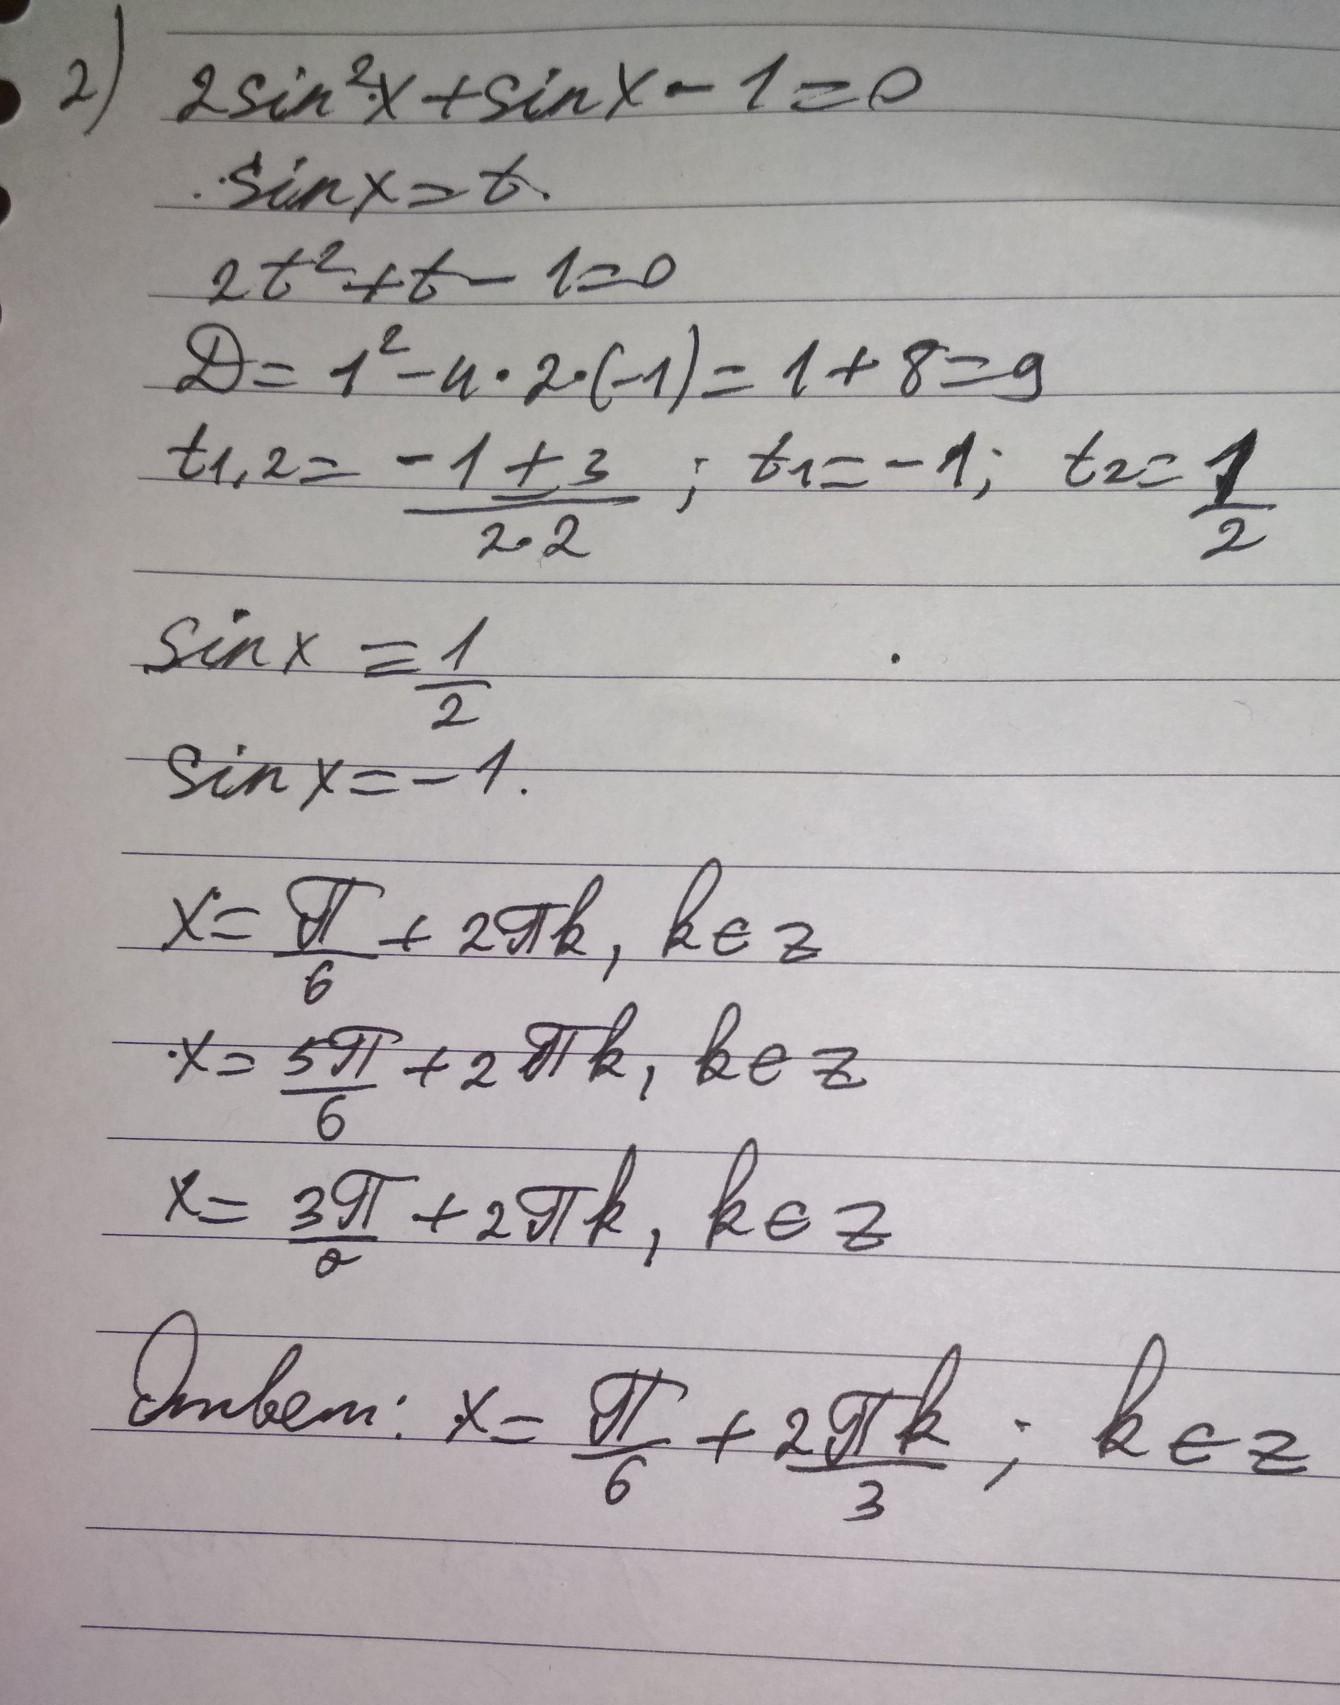 2) 2sin²x+sinx-1=0
sinx=t.
2t²+t-1=0
D=1²-4·2·(-1)=1+8=9
t1,2=(-1±3)/(2·2); t1=-1; t2=1/2
sinx=1/2
sinx=-1.
x=π/6+2πk, k∈z
x=5π/6+2πk, k∈z
x=3π/2+2πk, k∈z
Ответ: x=π/6+2πk/3; k∈z